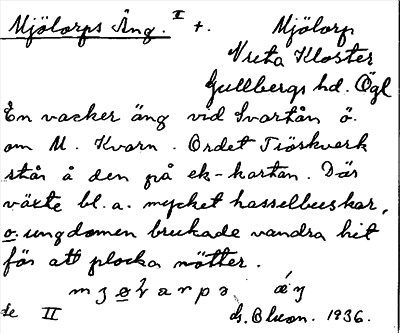 Mjölorps Äng. II +.
Mjölorp
Vreta Kloster
Gullbergs hd. Ögl
En vacker äng vid Svartån ö.
om M. Kvarn. Ordet Tröskverk
står å den på ek-kartan. Där
växte bl.a. mycket hasselbuskar,
o. ungdomen brukade vandra hit
för att plocka nötter.
se II
1936.